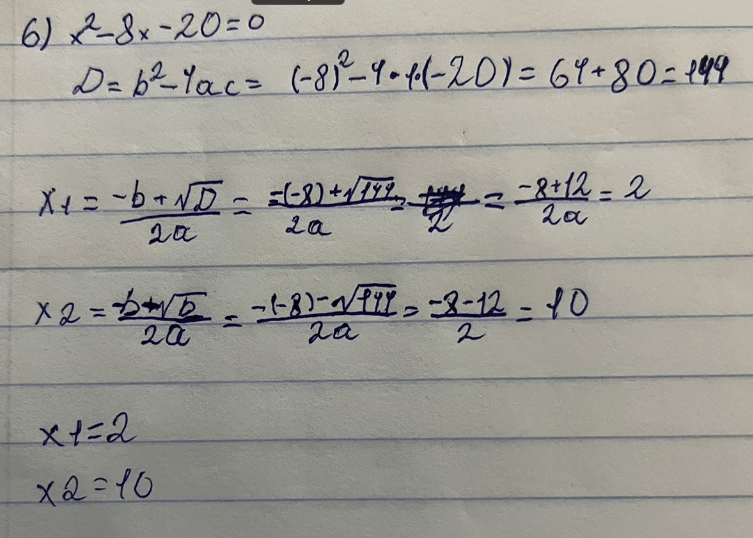 6) x²-8x-20=0
D=b²-4ac= (-8)²-4•1•(-20)=64+80=144
x1=(-b+√D)/2a=(-(-8)+√144)/2a= /2=(-8+12)/2a=2
x2=(-b-√D)/2a=(-(-8)-√144)/2a=(-8-12)/2=10
x1=2
x2=10